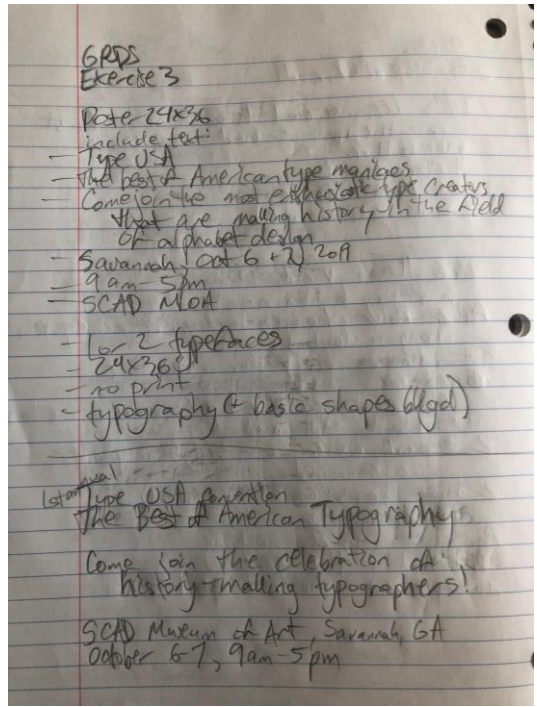 GRDS
Exercise 3
Poster 24x36
include text:
- Type USA
- The best of American type maniacs
- Come join the most type creators
that are making history in the field
of alphabet design
- Savannah, Oct 6 + 7, 2019
- 9am-5pm
- SCAD MOA
- 1 or 2 typefaces
- 24x36
- no print
- typography (+ basic shapes bkgd)
1st annual
Type USA Convention
The Best of American Typography
Come join the celebration of
history-making typographers!
SCAD Museum of Art, Savannah, GA
October 6-7, 9am-5pm